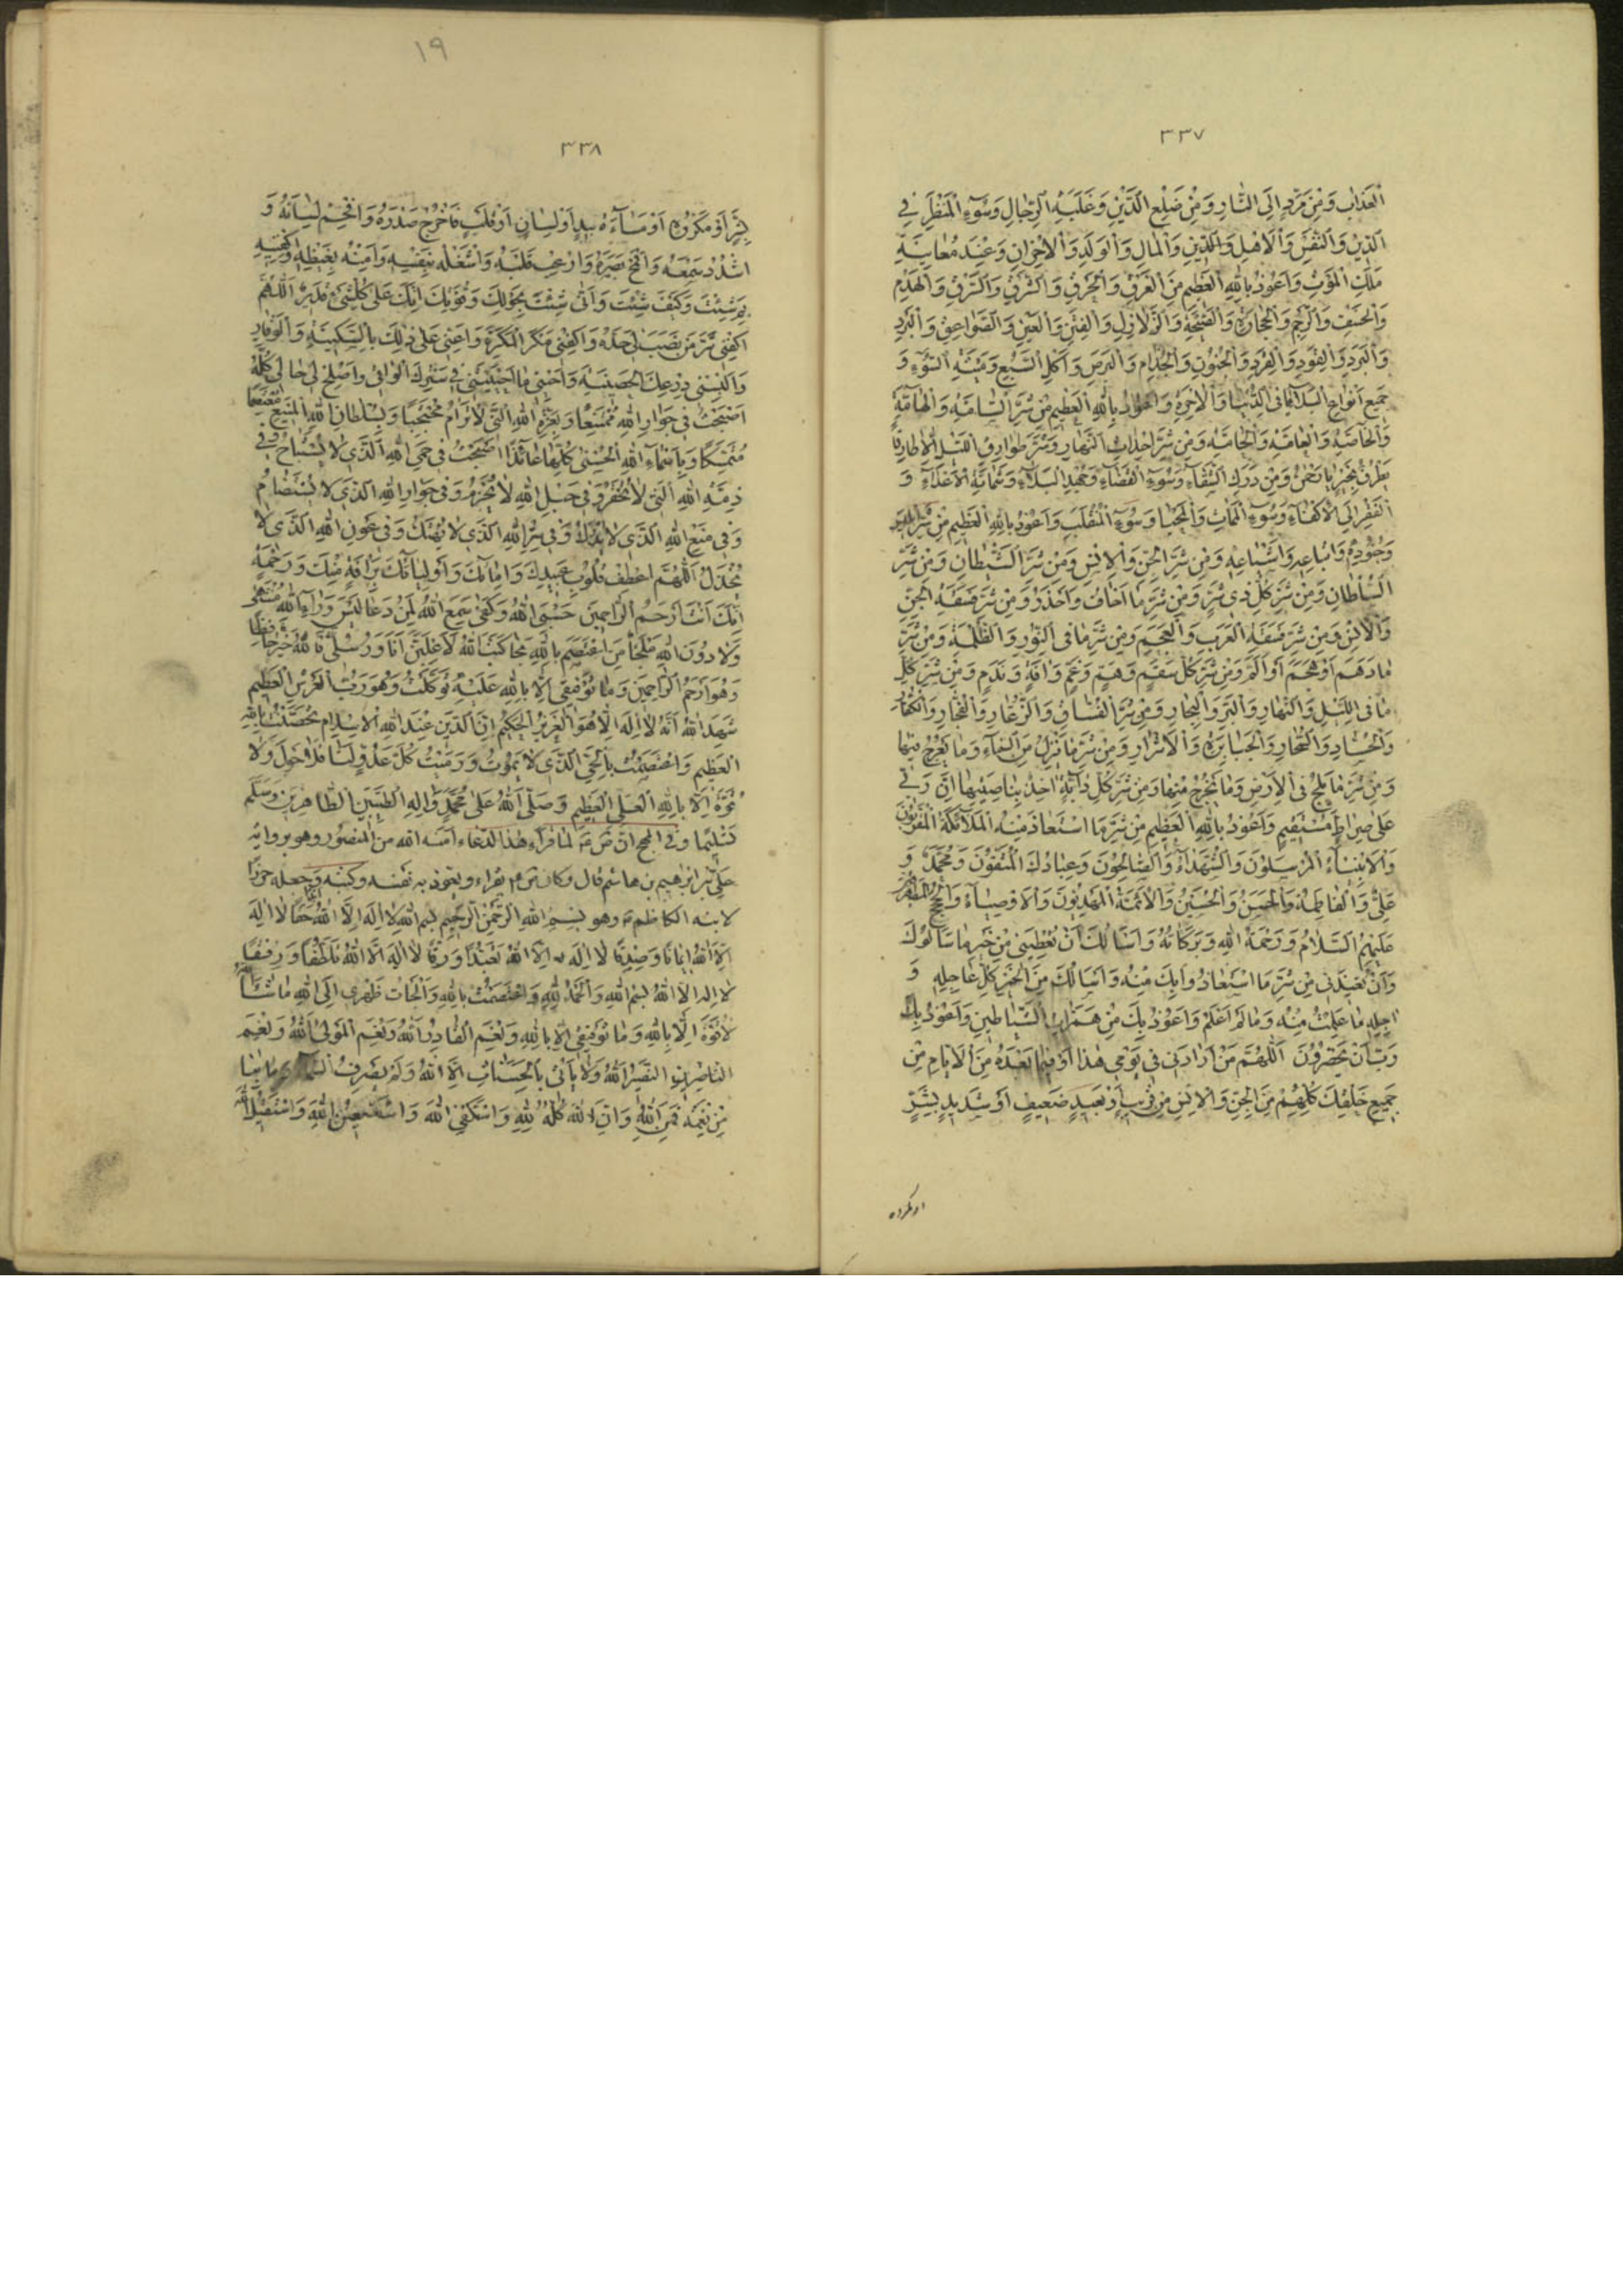 ٣٣٧
الْعَذَابِ وَمِنْ مَرَدٍّ إِلَى النَّارِ وَمِنْ ضَلَعِ الدَّيْنِ وَغَلَبَةِ الرِّجَالِ وَسُوءِ الْمَنْظَرِ فِي
الدِّينِ وَالنَّفْسِ وَالْأَهْلِ وَالْمَالِ وَالْوَلَدِ وَالْإِخْوَانِ وَعِنْدَ مُعَايَنَةِ
مَلَكِ الْمَوْتِ وَأَعُوذُ بِاللهِ الْعَظِيمِ مِنَ الْغَرَقِ وَالْحَرَقِ وَالشَّرَقِ وَالسَّرَقِ وَالْهَدْمِ
وَالْخَسْفِ وَالرَّجْمِ وَالْحِجَارَةِ وَالصَّيْحَةِ وَالزَّلَازِلِ وَالْفِتَنِ وَالْعَيْنِ وَالصَّوَاعِقِ وَالْبَرَدِ
وَالْقَوَدِ وَالْقَرَدِ وَالْجُنُونِ وَالْجُذَامِ وَالْبَرَصِ وَأَكْلِ السَّبُعِ وَمِيتَةِ السُّوءِ وَ
جَمِيعِ أَنْوَاعِ الْبَلَايَا فِي الدُّنْيَا وَالْآخِرَةِ وَأَعُوذُ بِاللهِ الْعَظِيمِ مِنْ شَرِّ السَّامَّةِ وَالْهَامَّةِ
وَالْخَاصَّةِ وَالْعَامَّةِ وَالْحَامَّةِ وَمِنْ شَرِّ أَحْدَاثِ النَّهَارِ وَشَرِّ طَوَارِقِ اللَّيْلِ إِلَّا طَارِقًا
يَطْرُقُ بِخَيْرٍ يَا رَحْمٰنُ وَمِنْ دَرَكِ الشَّقَاءِ وَسُوءِ الْقَضَاءِ وَجَهْدِ الْبَلَاءِ وَشَمَاتَةِ الْأَعْدَاءِ وَ
الْفَقْرِ إِلَى الْأَكْفَاءِ وَسُوءِ الْمَمَاتِ وَالْمَحْيَا وَسُوءِ الْمُنْقَلَبِ وَأَعُوذُ بِاللهِ الْعَظِيمِ مِنْ شَرِّ إِبْلِيسَ
وَجُنُودِهِ وَأَتْبَاعِهِ وَأَشْيَاعِهِ وَمِنْ شَرِّ الْجِنِّ وَالْإِنْسِ وَمِنْ شَرِّ الشَّيْطَانِ وَمِنْ شَرِّ
السُّلْطَانِ وَمِنْ شَرِّ كُلِّ ذِي شَرٍّ وَمِنْ شَرِّ مَا أَخَافُ وَأَحْذَرُ وَمِنْ شَرِّ فَسَقَةِ الْجِنِّ
وَالْإِنْسِ وَمِنْ شَرِّ فَسَقَةِ الْعَرَبِ وَالْعَجَمِ وَمِنْ شَرِّ مَا فِي النُّورِ وَالظُّلْمَةِ وَمِنْ شَرِّ
مَا دَهَمَ أَوْ هَجَمَ أَوْ أَلَمَّ وَمِنْ شَرِّ كُلِّ سَقَمٍ وَهَمٍّ وَغَمٍّ وَآفَةٍ وَنَدَمٍ وَمِنْ شَرِّ كُلِّ
مَا فِي اللَّيْلِ وَالنَّهَارِ وَالْبَرِّ وَالْبِحَارِ وَمِنْ شَرِّ الْفُسَّاقِ وَالذُّعَّارِ وَالْفُجَّارِ وَالْكُفَّارِ
وَالْحُسَّادِ وَالسُّحَّارِ وَالْجَبَابِرَةِ وَالْأَشْرَارِ وَمِنْ شَرِّ مَا يَنْزِلُ مِنَ السَّمَاءِ وَمَا يَعْرُجُ فِيهَا
وَمِنْ شَرِّ مَا يَلِجُ فِي الْأَرْضِ وَمَا يَخْرُجُ مِنْهَا وَمِنْ شَرِّ كُلِّ دَابَّةٍ آخِذٌ بِنَاصِيَتِهَا إِنَّ رَبِّي
عَلَى صِرَاطٍ مُسْتَقِيمٍ وَأَعُوذُ بِاللهِ الْعَظِيمِ مِنْ شَرِّ مَا اسْتَعَاذَ مِنْهُ الْمَلَائِكَةُ الْمُقَرَّبُونَ
وَالْأَنْبِيَاءُ الْمُرْسَلُونَ وَالشُّهَدَاءُ وَالصَّالِحُونَ وَعِبَادُكَ الْمُتَّقُونَ وَمُحَمَّدٌ وَ
عَلِيٌّ وَالْفَاطِمَةُ وَالْحَسَنُ وَالْحُسَيْنُ وَالْأَئِمَّةُ الْمَهْدِيُّونَ وَالْأَوْصِيَاءُ وَالْحُجَجُ الْمُطَهَّرُونَ
عَلَيْهِمُ السَّلَامُ وَرَحْمَةُ اللهِ وَبَرَكَاتُهُ وَأَسْأَلُكَ أَنْ تُعْطِيَنِي مِنْ خَيْرِ مَا سَأَلُوكَ
وَأَنْ تُعِيذَنِي مِنْ شَرِّ مَا اسْتَعَاذُوا بِكَ مِنْهُ وَأَسْأَلُكَ مِنَ الْخَيْرِ كُلِّهِ عَاجِلِهِ وَ
آجِلِهِ مَا عَلِمْتُ مِنْهُ وَمَا لَمْ أَعْلَمْ وَأَعُوذُ بِكَ مِنْ هَمَزَاتِ الشَّيَاطِينِ وَأَعُوذُ بِكَ
رَبِّ أَنْ يَحْضُرُونِ اللّٰهُمَّ مَنْ أَرَادَنِي فِي يَوْمِي هٰذَا أَوْ فِيمَا بَعْدَهُ مِنَ الْأَيَّامِ مِنْ
جَمِيعِ خَلْقِكَ كُلِّهِمْ مِنَ الْجِنِّ وَالْإِنْسِ قَرِيبٍ أَوْ بَعِيدٍ ضَعِيفٍ أَوْ شَدِيدٍ بِشَرٍّ
او مکروه
١٩
٣٣٨
بِشَرٍّ أَوْ مَكْرُوهٍ أَوْ مَسَاءَةٍ بِيَدٍ أَوْ لِسَانٍ أَوْ قَلْبٍ فَأَحْرِجْ صَدْرَهُ وَأَفْحِمْ لِسَانَهُ وَ
اشْدُدْ سَمْعَهُ وَاقْمَحْ بَصَرَهُ وَارْعِبْ قَلْبَهُ وَاشْغَلْهُ بِنَفْسِهِ وَأَمِتْهُ بِغَيْظِهِ وَاكْفِنِيهِ
بِمَ شِئْتَ وَكَيْفَ شِئْتَ وَأَنّٰى شِئْتَ بِحَوْلِكَ وَقُوَّتِكَ إِنَّكَ عَلَى كُلِّ شَيْءٍ قَدِيرٌ اللّٰهُمَّ
اكْفِنِي شَرَّ مَنْ نَصَبَ لِي حَدَّهُ وَاكْفِنِي مَكْرَ الْمَكَرَةِ وَأَعِنِّي عَلَى ذٰلِكَ بِالسَّكِينَةِ وَالْوَقَارِ
وَأَلْبِسْنِي دِرْعَكَ الْحَصِينَةَ وَأَحْيِنِي مَا أَحْيَيْتَنِي فِي سِتْرِكَ الْوَاقِي وَأَصْلِحْ لِي حَالِي كُلَّهُ
أَصْبَحْتُ فِي جِوَارِ اللهِ مُمْتَنِعًا وَبِعِزَّةِ اللهِ الَّتِي لَا تُرَامُ مُحْتَجِبًا وَبِسُلْطَانِ اللهِ الْمَنِيعِ مُعْتَصِمًا
مُتَمَسِّكًا وَبِأَسْمَاءِ اللهِ الْحُسْنَى كُلِّهَا عَائِذًا أَصْبَحْتُ فِي حِمَى اللهِ الَّذِي لَا يُسْتَبَاحُ وَفِي
ذِمَّةِ اللهِ الَّتِي لَا تُخْفَرُ وَفِي حَبْلِ اللهِ لَا يُجْذَمُ وَفِي جِوَارِ اللهِ الَّذِي لَا يُسْتَضَامُ
وَفِي مَنْعِ اللهِ الَّذِي لَا يُدْرَكُ وَفِي سِتْرِ اللهِ الَّذِي لَا يُهْتَكُ وَفِي عَوْنِ اللهِ الَّذِي لَا
يُخْذَلُ اللّٰهُمَّ اعْطِفْ قُلُوبَ عَبِيدِكَ وَإِمَائِكَ وَأَوْلِيَائِكَ بِرَأْفَةٍ مِنْكَ وَرَحْمَةٍ
إِنَّكَ أَنْتَ أَرْحَمُ الرَّاحِمِينَ حَسْبِيَ اللهُ وَكَفٰى سَمِعَ اللهُ لِمَنْ دَعَا لَيْسَ وَرَاءَ اللهِ مُنْتَهًى
وَلَا دُونَ اللهِ مَلْجَأٌ مَنِ اعْتَصَمَ بِاللهِ نَجَا كَتَبَ اللهُ لَأَغْلِبَنَّ أَنَا وَرُسُلِي فَاللهُ خَيْرٌ حَافِظًا
وَهُوَ أَرْحَمُ الرَّاحِمِينَ وَمَا تَوْفِيقِي إِلَّا بِاللهِ عَلَيْهِ تَوَكَّلْتُ وَهُوَ رَبُّ الْعَرْشِ الْعَظِيمِ
شَهِدَ اللهُ أَنَّهُ لَا إِلٰهَ إِلَّا هُوَ الْعَزِيزُ الْحَكِيمُ إِنَّ الدِّينَ عِنْدَ اللهِ الْإِسْلَامُ تَحَصَّنْتُ بِاللهِ
الْعَظِيمِ وَاعْتَصَمْتُ بِالْحَيِّ الَّذِي لَا يَمُوتُ وَرَمَيْتُ كُلَّ عَدُوٍّ لَنَا بِلَا حَوْلَ وَلَا
قُوَّةَ إِلَّا بِاللهِ الْعَلِيِّ الْعَظِيمِ وَصَلَّى اللهُ عَلَى مُحَمَّدٍ وَآلِهِ الطَّيِّبِينَ الطَّاهِرِينَ وَسَلَّمَ
تَسْلِيمًا وفي المهج ان ص ع لما قرأ هذا الدعاء امنه الله من المنصور وهو برواية
علي بن ابراهيم بن هاشم قال وكان ص ع يقراء ويعوذ به نفسه وكتبه وجعله حرزا
لابنه الكاظم ع وهو بِسْمِ اللهِ الرَّحْمٰنِ الرَّحِيمِ بِسْمِ اللهِ لَا إِلٰهَ إِلَّا اللهُ حَقًّا لَا إِلٰهَ
إِلَّا اللهُ إِيمَانًا وَصِدْقًا لَا إِلٰهَ إِلَّا اللهُ تَعَبُّدًا وَرِقًّا لَا إِلٰهَ إِلَّا اللهُ تَلَطُّفًا وَرِفْقًا
لَا إِلٰهَ إِلَّا اللهُ بِسْمِ اللهِ وَالْحَمْدُ لِلّٰهِ وَاعْتَصَمْتُ بِاللهِ وَأَلْجَأْتُ ظَهْرِي إِلَى اللهِ مَا شَاءَ اللهُ
لَا قُوَّةَ إِلَّا بِاللهِ وَمَا تَوْفِيقِي إِلَّا بِاللهِ وَنِعْمَ الْقَادِرُ اللهُ وَنِعْمَ الْمَوْلَى اللهُ وَنِعْمَ
النَّصِيرُ اللهُ وَلَا يَأْتِي بِالْحَسَنَاتِ إِلَّا اللهُ وَلَا يَصْرِفُ
مِنْ نِعْمَةٍ فَمِنَ اللهِ وَإِنَّ كُلَّهُ لِلّٰهِ وَأَسْتَكْفِي اللهَ وَأَسْتَعِينُ اللهَ وَأَسْتَقِيلُ اللهَ